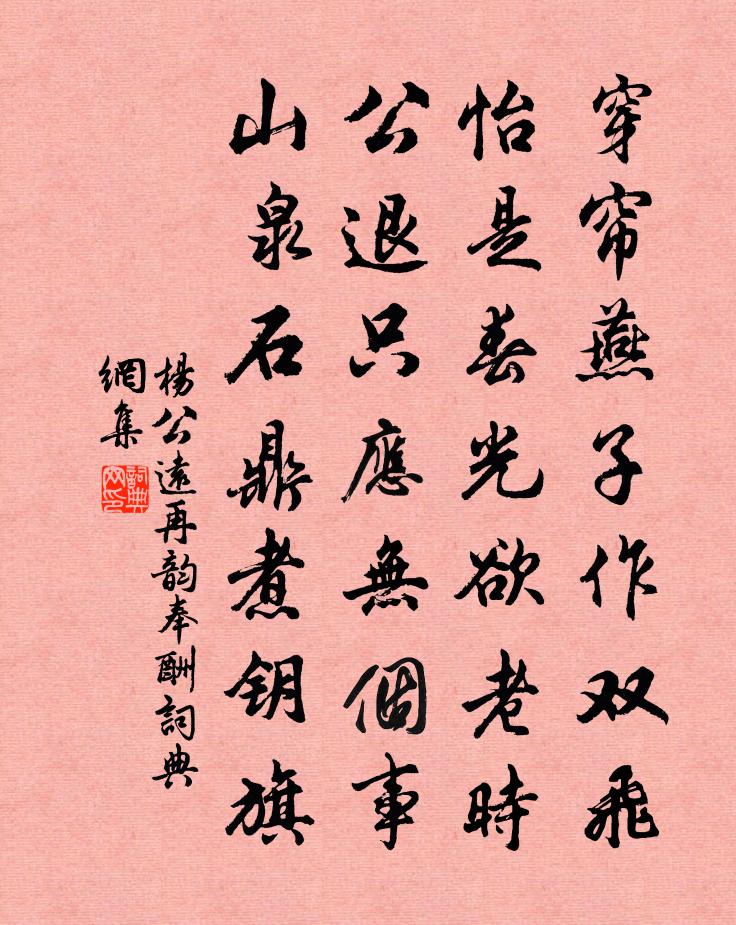 穿帘燕子作双飛
怡是春光欲老時
公退只應無個事
山泉石鼎煮钥旗
楊公遠再韵奉酬詞典
網集
詞典
网印